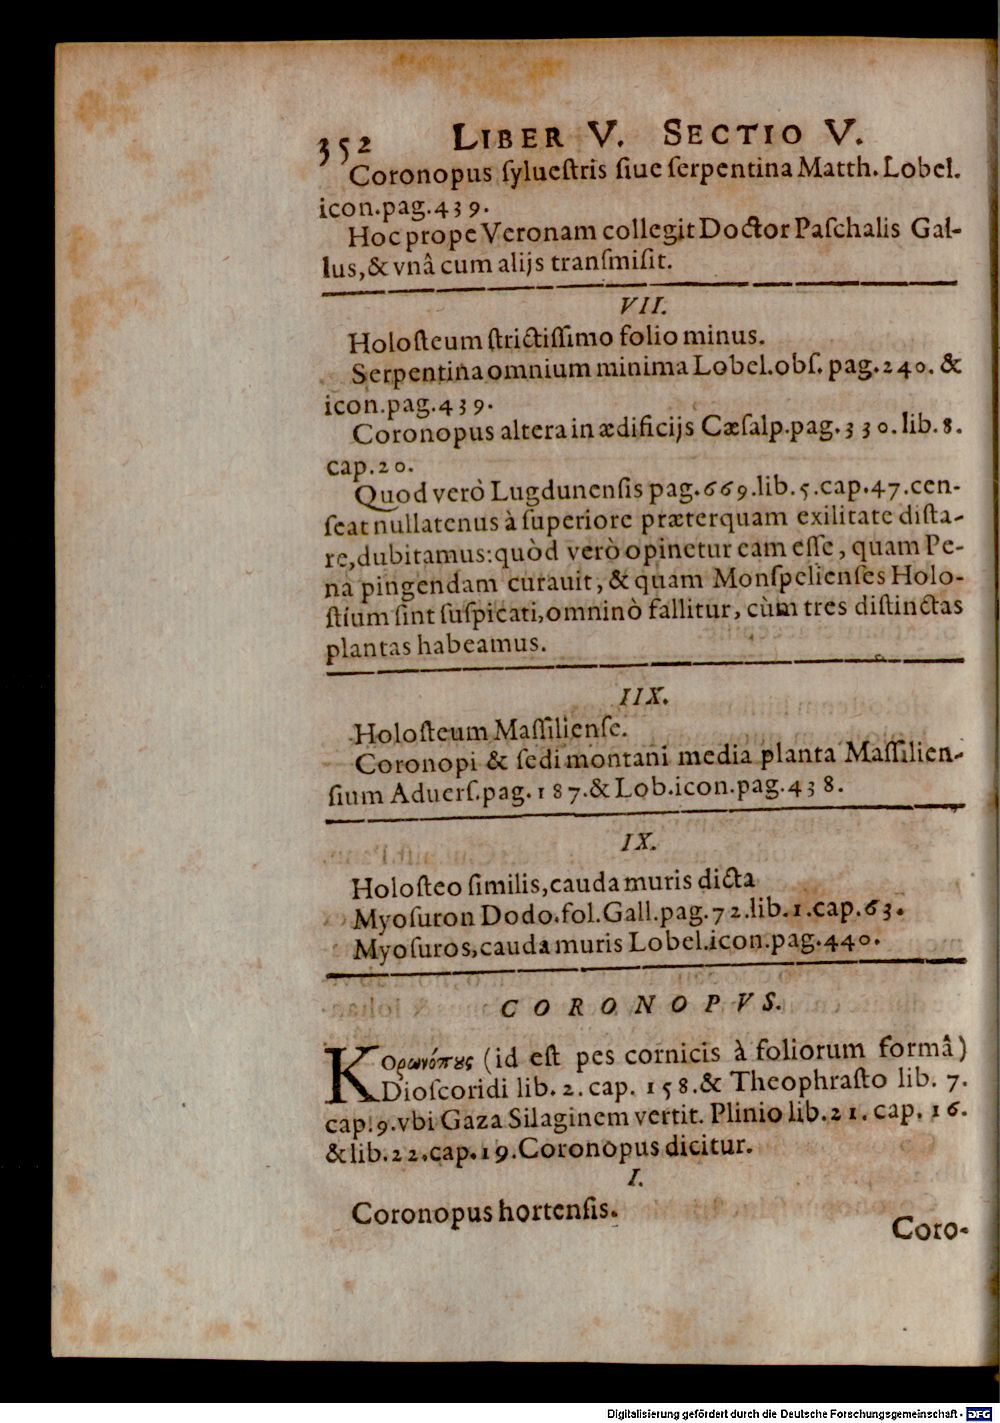 352 LIBER V. SECTIO V.
Coronopus ſylueſtris ſiue ſerpentina Matth. Lobel.
icon.pag.439.
Hoc prope Veronam collegit Doctor Paſchalis Gal-
lus, & vnâ cum alijs tranſmiſit.
VII.
Holoſteum ſtrictiſſimo folio minus.
Serpentina omnium minima Lobel.obſ. pag.240. &
icon.pag.439.
Coronopus altera in ædificijs Cæſalp.pag.330.lib.8.
cap.20.
Quod verò Lugdunenſis pag.669.lib.5.cap.47.cen-
ſeat nullatenus à ſuperiore præterquam exilitate diſta-
re,dubitamus:quòd verò opinetur eam eſſe, quam Pe-
na pingendam curauit, & quam Monſpelienſes Holo-
ſtium ſint ſuſpicati,omninò fallitur, cùm tres diſtinctas
plantas habeamus.
IIX.
Holoſteum Maſſilienſe.
Coronopi & ſedi montani media planta Maſſilien-
ſium Aduerſ.pag.187.& Lob.icon.pag.438.
IX.
Holoſteo ſimilis,cauda muris dicta
Myoſuron Dodo.fol.Gall.pag.72.lib.1.cap.63.
Myoſuros,cauda muris Lobel.icon.pag.440.
CORONOPVS.
Κορωνόπȣς (id eſt pes cornicis à foliorum formâ)
Dioſcoridi lib. 2. cap. 158.& Theophraſto lib. 7.
cap.9.vbi Gaza Silaginem vertit. Plinio lib.21. cap. 16.
& lib.22.cap.19.Coronopus dicitur.
I.
Coronopus hortenſis.
Coro-
Digitalisierung gefördert durch die Deutsche Forschungsgemeinschaft - DFG